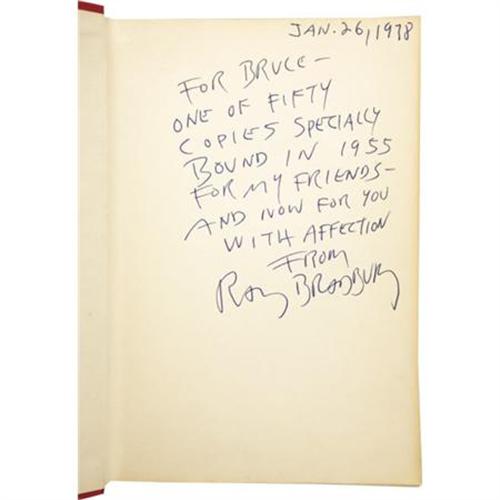 JAN. 26, 1978
FOR BRUCE —
ONE OF FIFTY
COPIES SPECIALLY
BOUND IN 1955
FOR MY FRIENDS —
AND NOW FOR YOU
WITH AFFECTION
FROM
RAY BRADBURY